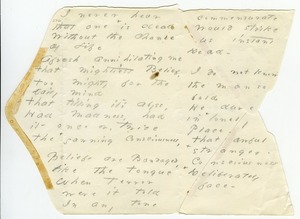 I never hear
that one is dead
Without the chance
of Life
Afresh annihilating me
That mightiest Belief,
Too mighty for the
Daily mind
That tilling its abyss,
Had Madness, had
it once or twice
the yawning Consciousness,
Beliefs are Bandaged,
like the Tongue
When Terror
were it told
In any Tone
commensurate
Would strike
us instant
Dead.
I do not know
the man so
bold
He dare
in lonely
Place
that awful
stranger
Consciousness
Deliberately
face